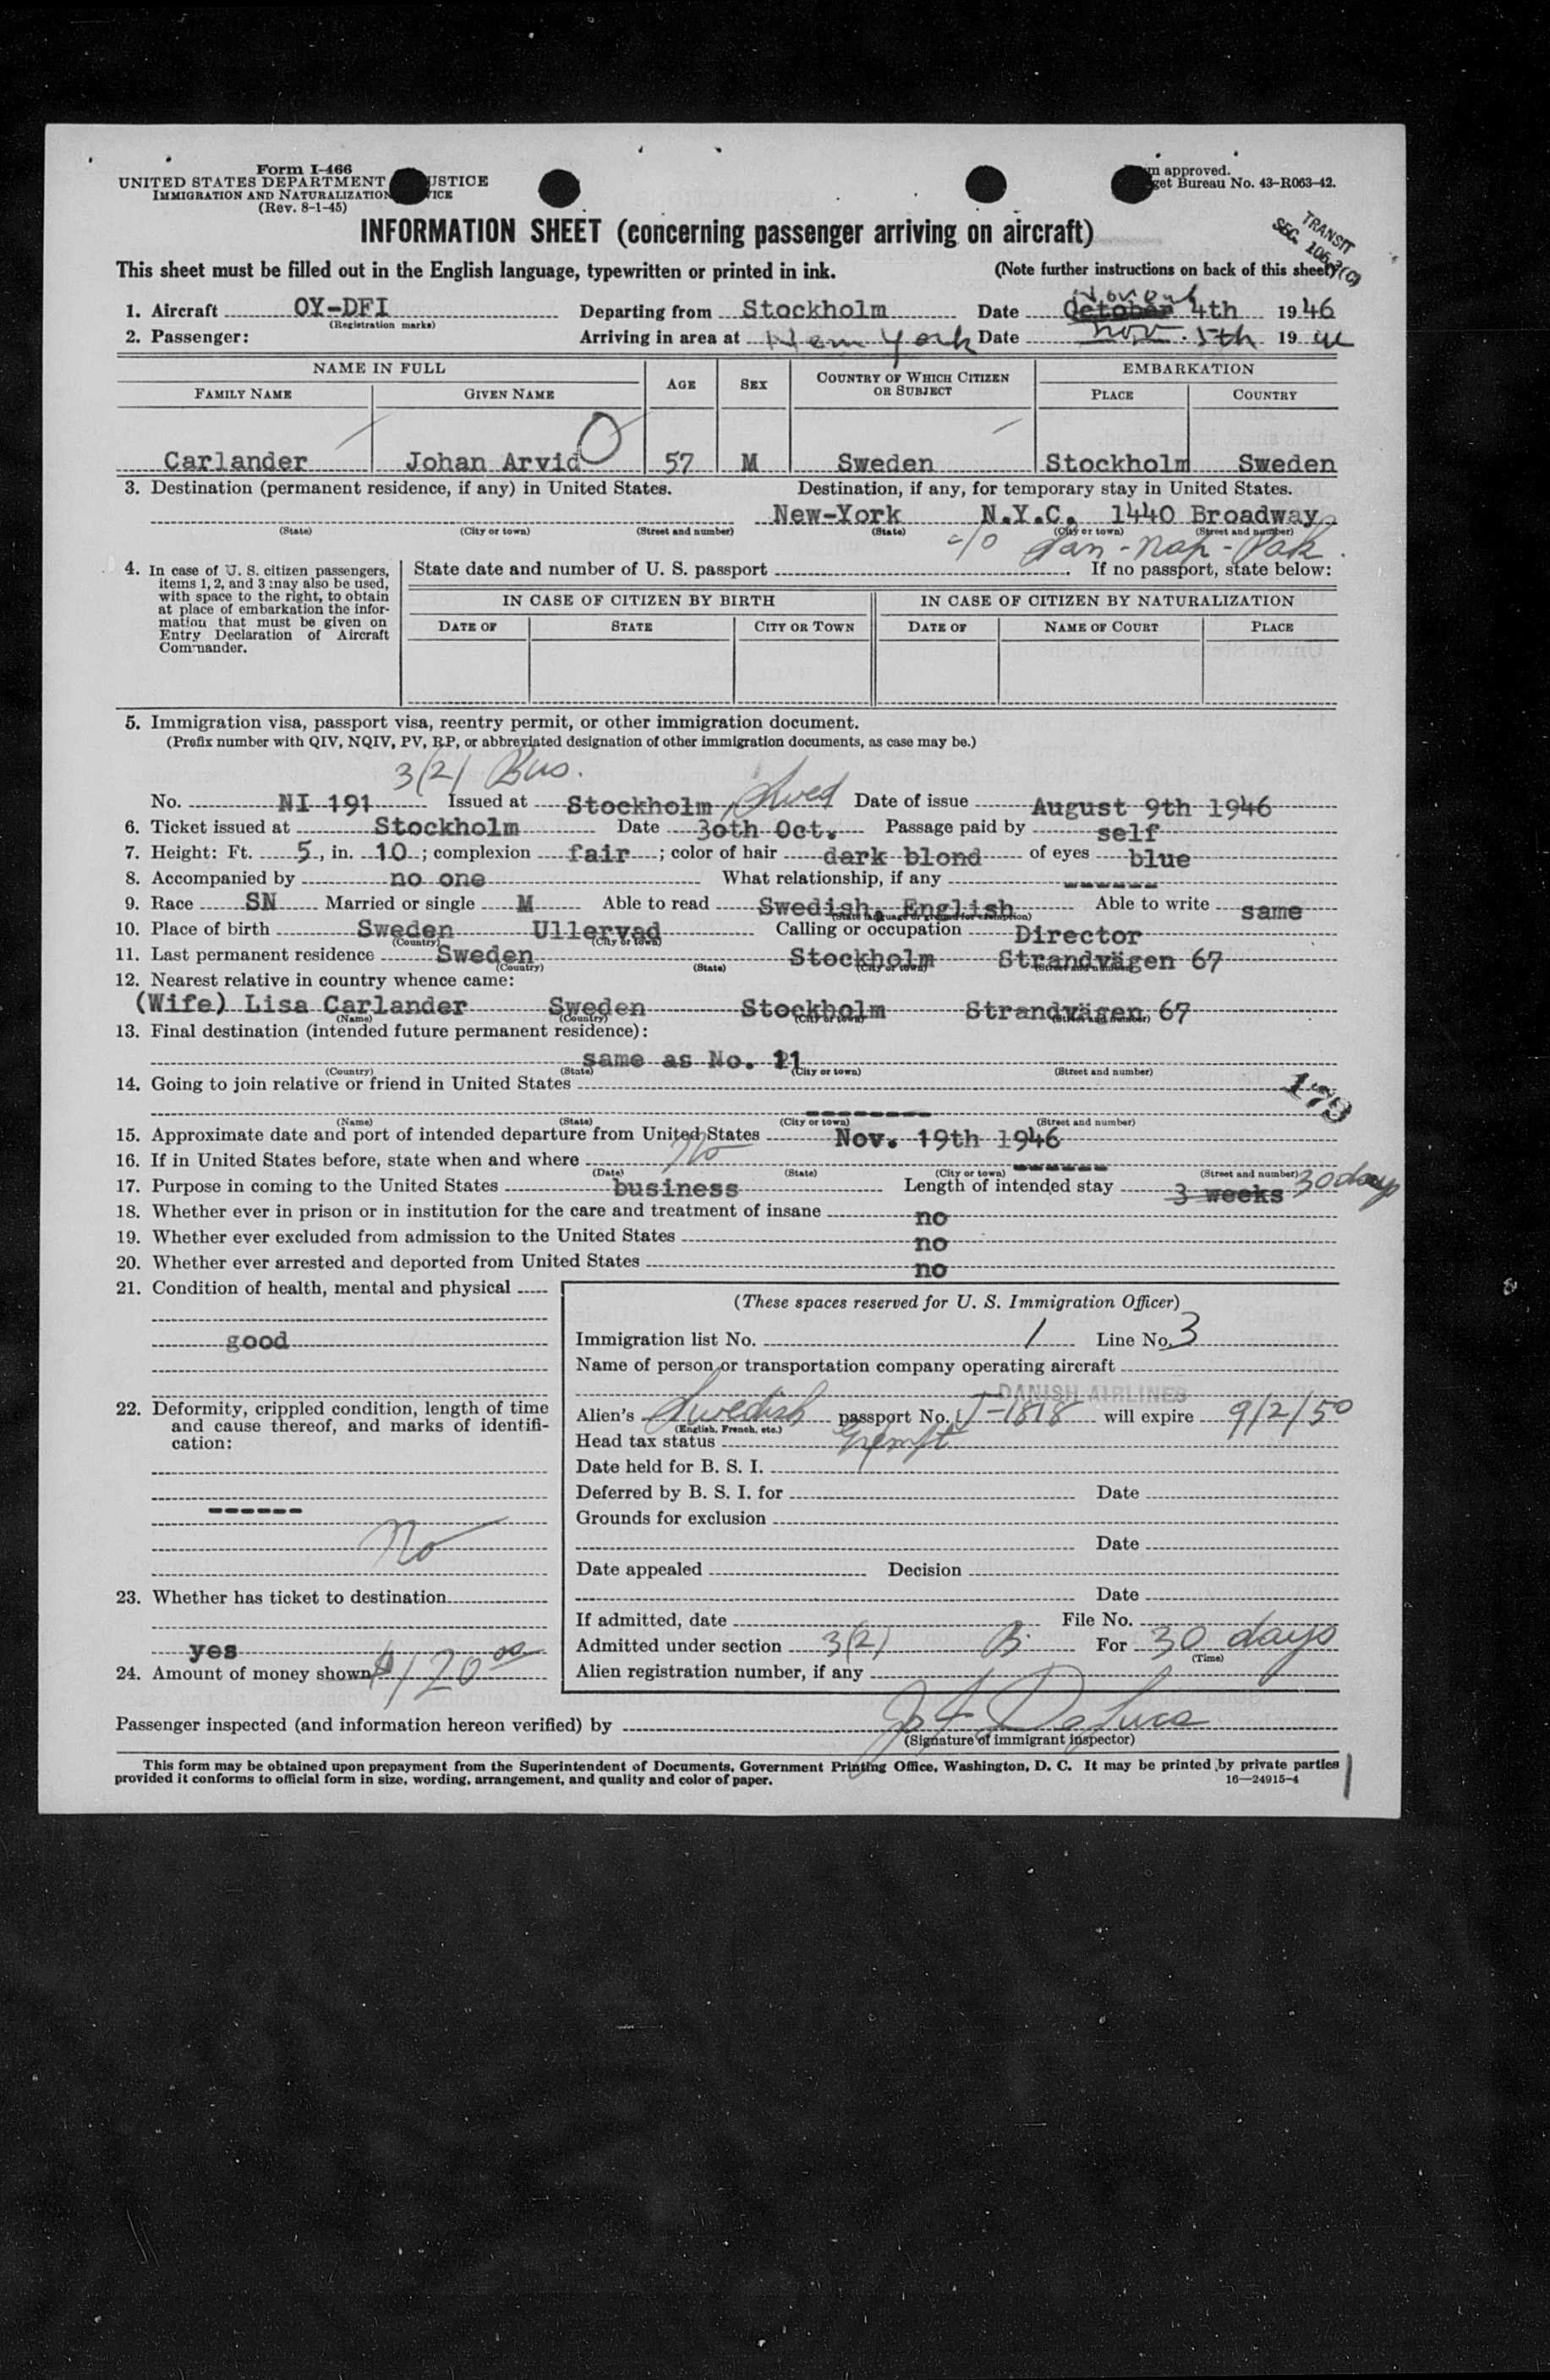 Form I-466
UNITED STATES DEPARTMENT USTICE
IMMIGRATION AND NATURALIZATION VICE
(Rev. 8-1-45)
m approved.
get Bureau No. 43-R063-42.
INFORMATION SHEET (concerning passenger arriving on aircraft)
TRANSIT
SEC. 106.3(C)
This sheet must be filled out in the English language, typewritten or printed in ink. (Note further instructions on back of this sheet)
1. Aircraft OY-DFI Departing from Stockholm Date October 4th 1946
(Registration marks)
2. Passenger: Arriving in area at New York Date Nov. 5th 19 46
NAME IN FULL AGE SEX COUNTRY OF WHICH CITIZEN OR SUBJECT EMBARKATION
FAMILY NAME GIVEN NAME PLACE COUNTRY
Carlander Johan Arvid 57 M Sweden Stockholm Sweden
3. Destination (permanent residence, if any) in United States. Destination, if any, for temporary stay in United States.
New-York N.Y.C. 1440 Broadway
(State) (City or town) (Street and number) (State) (City or town) (Street and number)
c/o San-Nap-Pak.
4. In case of U. S. citizen passengers, items 1, 2, and 3 may also be used, with space to the right, to obtain at place of embarkation the information that must be given on Entry Declaration of Aircraft Commander.
State date and number of U. S. passport If no passport, state below:
IN CASE OF CITIZEN BY BIRTH IN CASE OF CITIZEN BY NATURALIZATION
DATE OF STATE CITY OR TOWN DATE OF NAME OF COURT PLACE
5. Immigration visa, passport visa, reentry permit, or other immigration document.
(Prefix number with QIV, NQIV, PV, RP, or abbreviated designation of other immigration documents, as case may be.)
3(2) Bus.
No. NI 191 Issued at Stockholm, Swed Date of issue August 9th 1946
6. Ticket issued at Stockholm Date 30th Oct. Passage paid by self
7. Height: Ft. 5, in. 10; complexion fair; color of hair dark blond of eyes blue
8. Accompanied by no one What relationship, if any ------
9. Race SN Married or single M Able to read Swedish, English Able to write same
(State language or ground for exemption)
10. Place of birth Sweden Ullervad Calling or occupation Director
(Country) (City or town)
11. Last permanent residence Sweden Stockholm Strandvägen 67
(Country) (State) (City or town) (Street and number)
12. Nearest relative in country whence came:
(Wife) Lisa Carlander Sweden Stockholm Strandvägen 67
(Name) (Country) (City or town) (Street and number)
13. Final destination (intended future permanent residence):
same as No. 11
(Country) (State) (City or town) (Street and number)
14. Going to join relative or friend in United States
179
-------
(Name) (State) (City or town) (Street and number)
15. Approximate date and port of intended departure from United States Nov. 19th 1946
16. If in United States before, state when and where No ------
(Date) (State) (City or town) (Street and number)
17. Purpose in coming to the United States business Length of intended stay 3 weeks 30 days
18. Whether ever in prison or in institution for the care and treatment of insane no
19. Whether ever excluded from admission to the United States no
20. Whether ever arrested and deported from United States no
21. Condition of health, mental and physical
good
22. Deformity, crippled condition, length of time and cause thereof, and marks of identification:
------
No
23. Whether has ticket to destination
yes
24. Amount of money shown $120 00
(These spaces reserved for U. S. Immigration Officer)
Immigration list No. 1 Line No. 3
Name of person or transportation company operating aircraft
DANISH AIRLINES
Alien's Swedish passport No. J-1818 will expire 9/2/50
(English, French, etc.)
Head tax status Exempt
Date held for B. S. I.
Deferred by B. S. I. for Date
Grounds for exclusion
Date
Date appealed Decision
Date
If admitted, date File No.
Admitted under section 3(2) B. For 30 days
(Time)
Alien registration number, if any
Passenger inspected (and information hereon verified) by
(Signature of immigrant inspector)
This form may be obtained upon prepayment from the Superintendent of Documents, Government Printing Office, Washington, D. C. It may be printed by private parties
provided it conforms to official form in size, wording, arrangement, and quality and color of paper. 16—24915-4